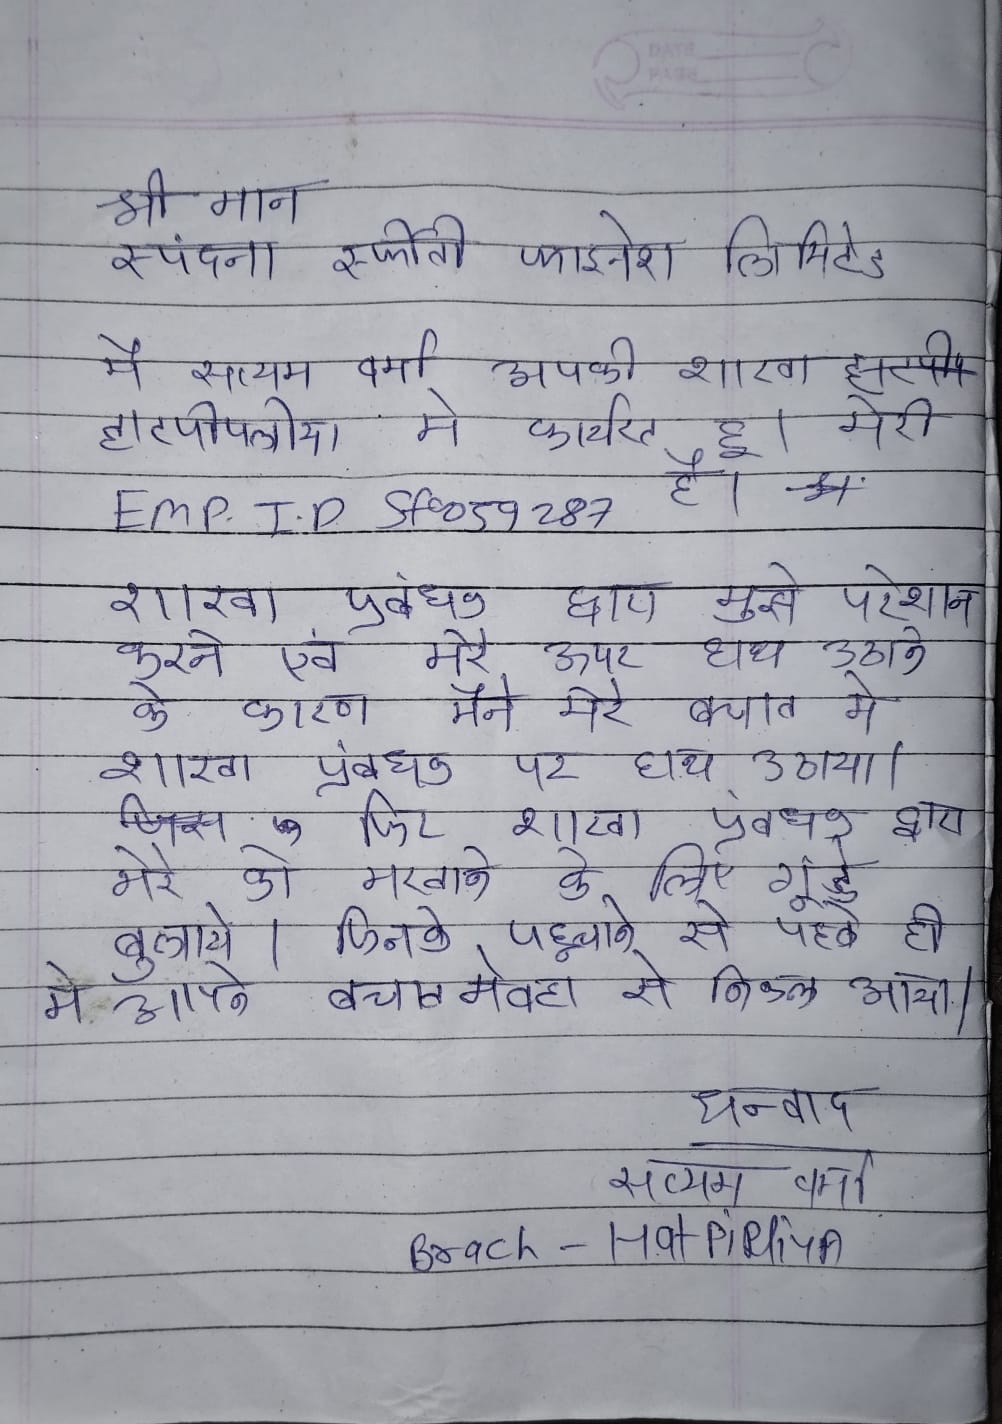 DATE
PAGE
श्री मान
स्पंदना स्फूर्ती फाइनेंश लिमिटेड
मै सत्यम वर्मा अपकी शाखा हाटपीप
हाटपीपलीया मे कार्यरत हू। मेरी
EMP. I.D Sf0059287 है।
शाखा प्रबंधक द्वारा मुझे परेशान
करने एवं मेरे ऊपर हाथ उठाने
के कारण मैने मेरे बचाव मे
शाखा प्रंबधक पर हाथ उठाया।
जिस के फिर शाखा प्रंबधक द्वारा
मेरे को मरवाने के लिए गूंडे
बुलाये। जिनके पहुचाने से पहले ही
मे आपने बचाव मे वहा से निकल आया।
धन्वाद
सत्यम वर्मा
Brach - Hat Pipliya